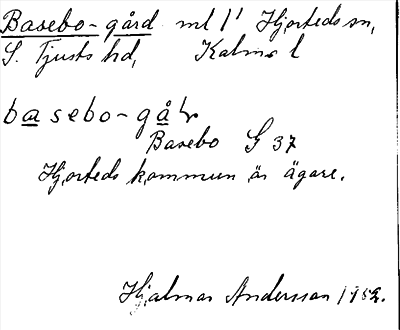 Basebo-gård ml 1' Hjorteds sn,
S. Tjusts hd, Kalmar l
basebo-går
Basebo G 37
Hjorteds kommun är ägare.
Hjalmar Andersson 1952.